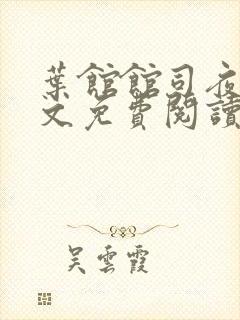 葉館館司夜
文免費閱讀
吳雲霞